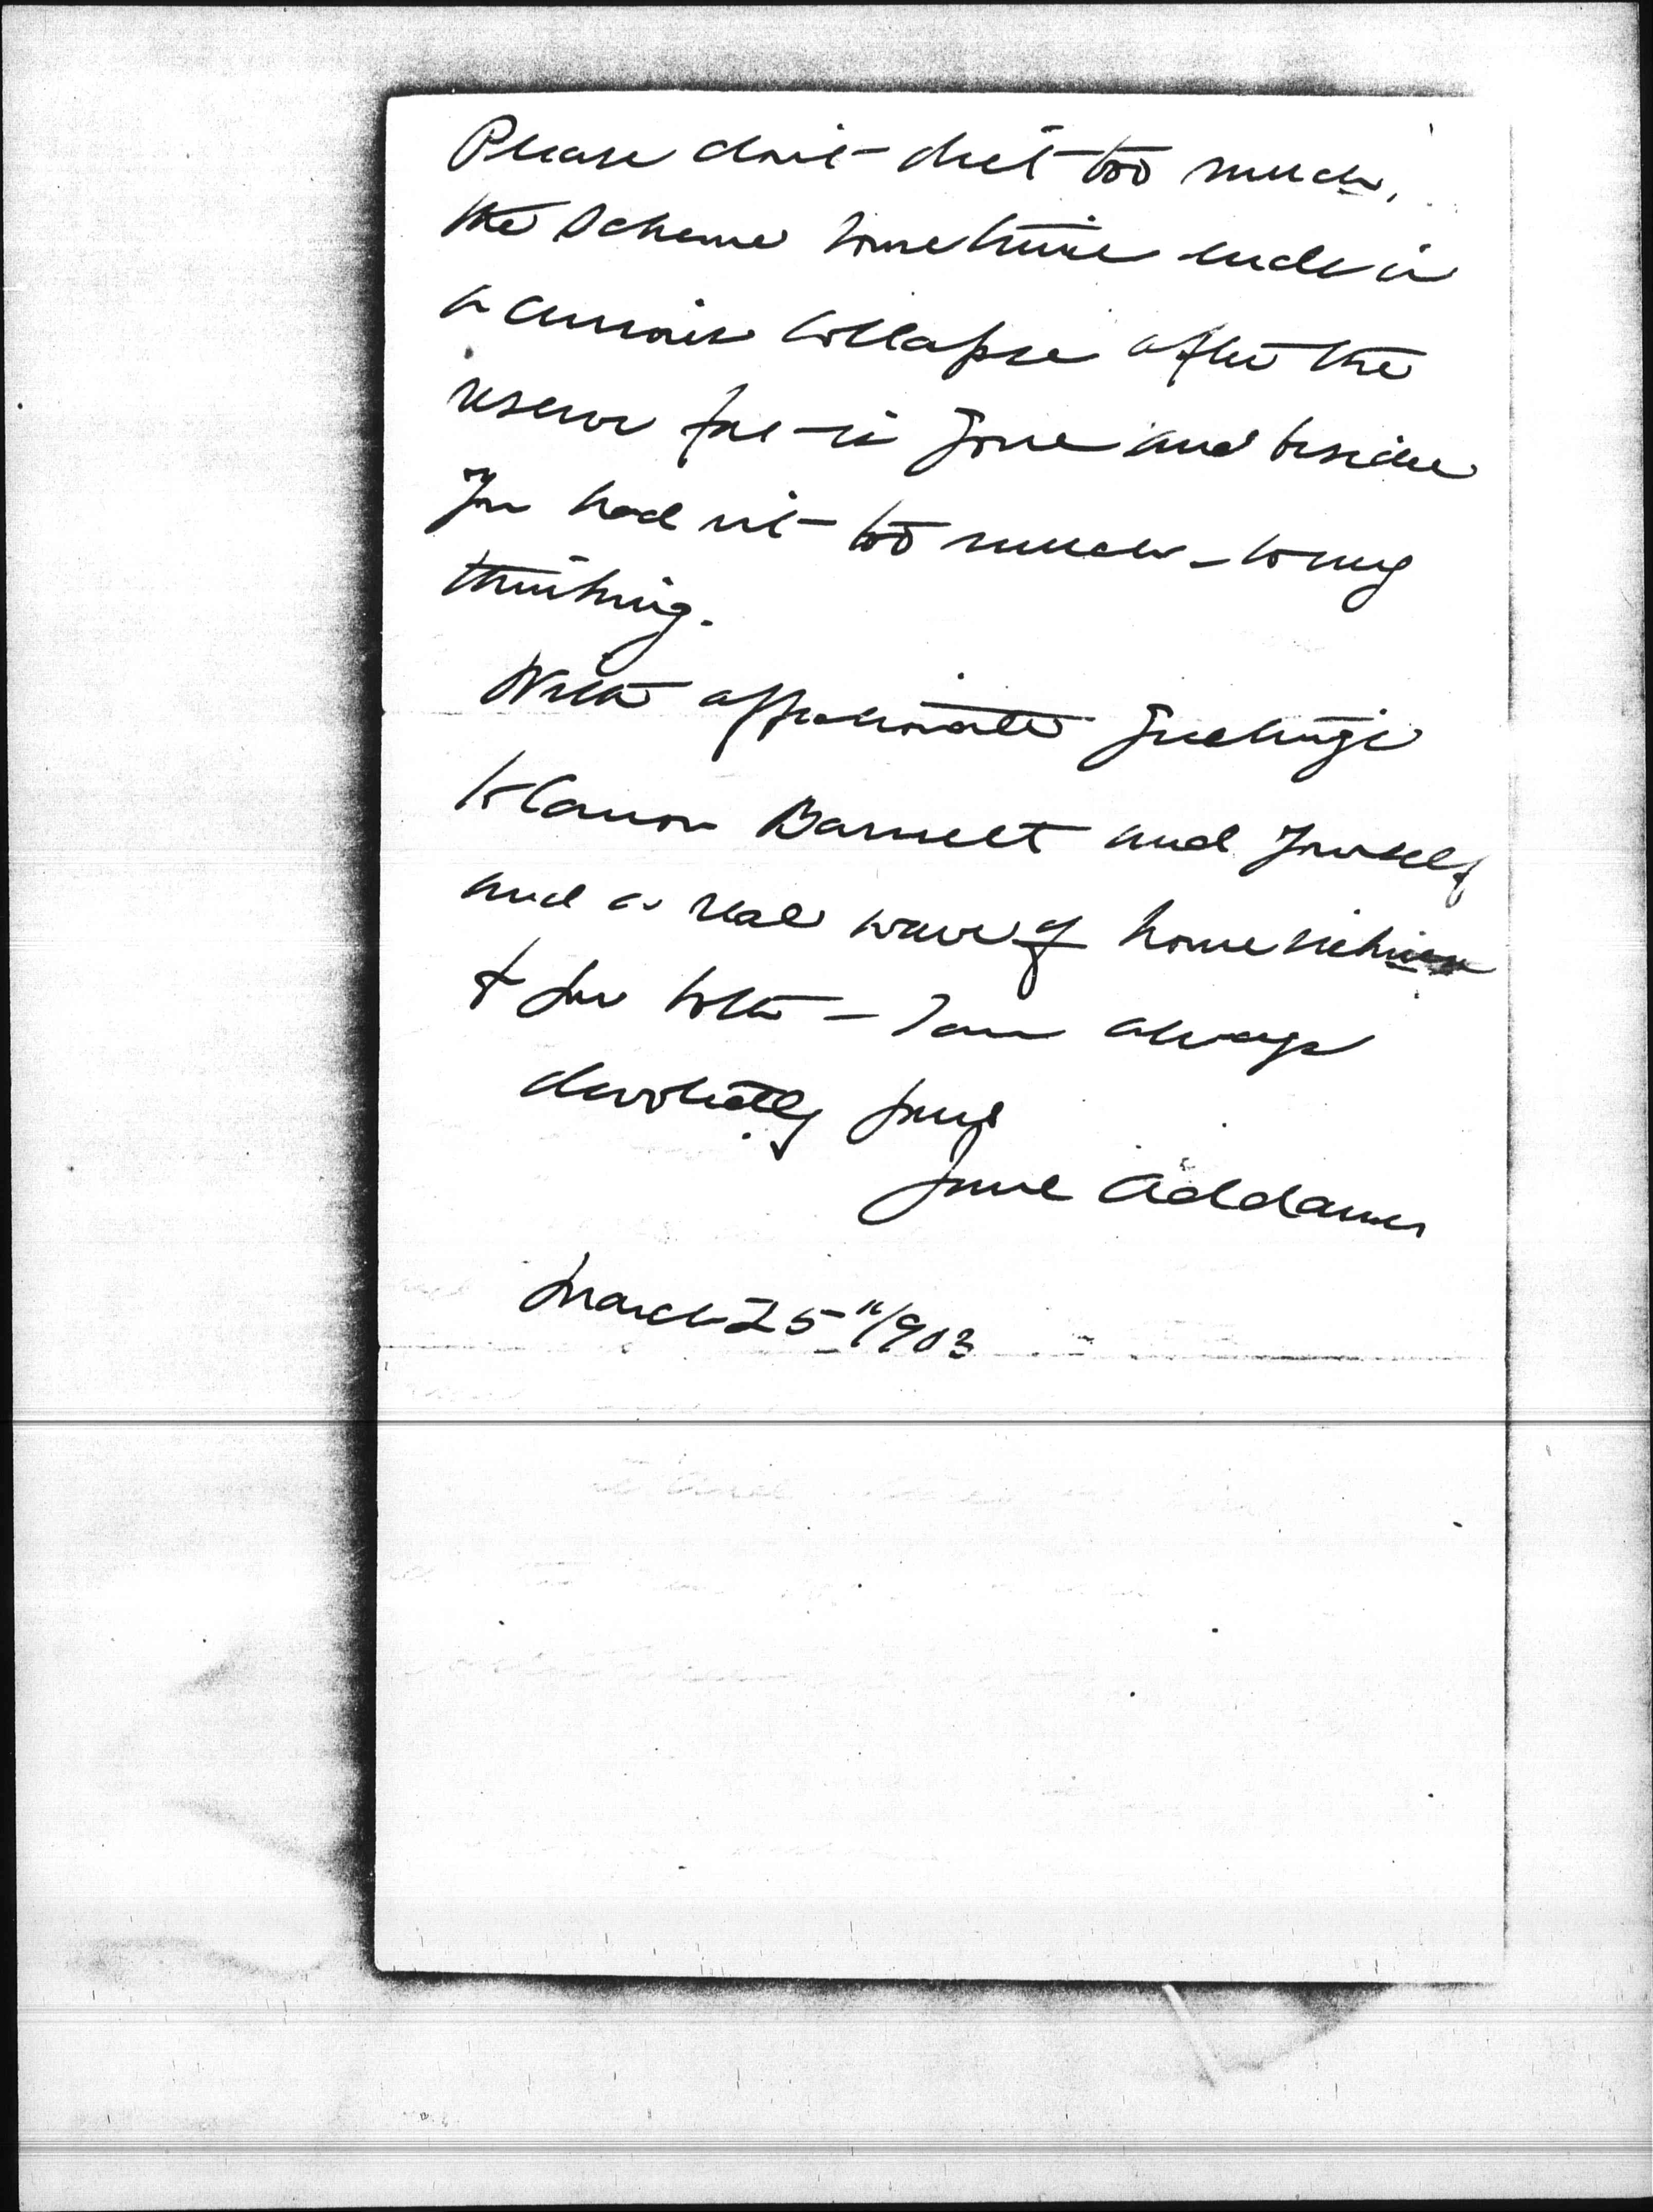 Please don't diet too much,
the scheme sometime ends in
a curious collapse after the
reserve fat is gone and beside
you had not too much - to my
thinking.
With affectionate greetings
to Canon Barnett and yourself
and a real wave of homesickness
for both - I am always
devotedly yours
Jane Addams
March 25" 1903